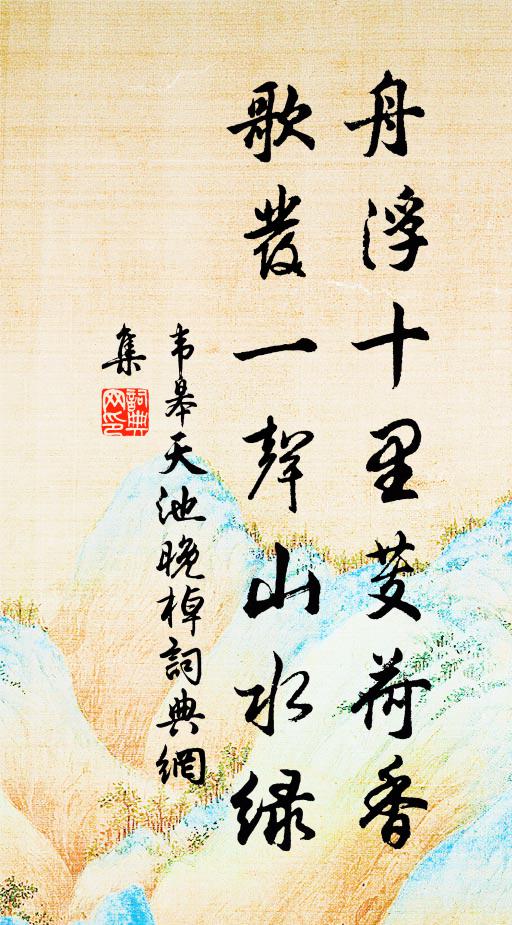 舟浮十里芰荷香
歌發一聲山水緑
韦皋天池晚棹詞典網
集
詞典
网印